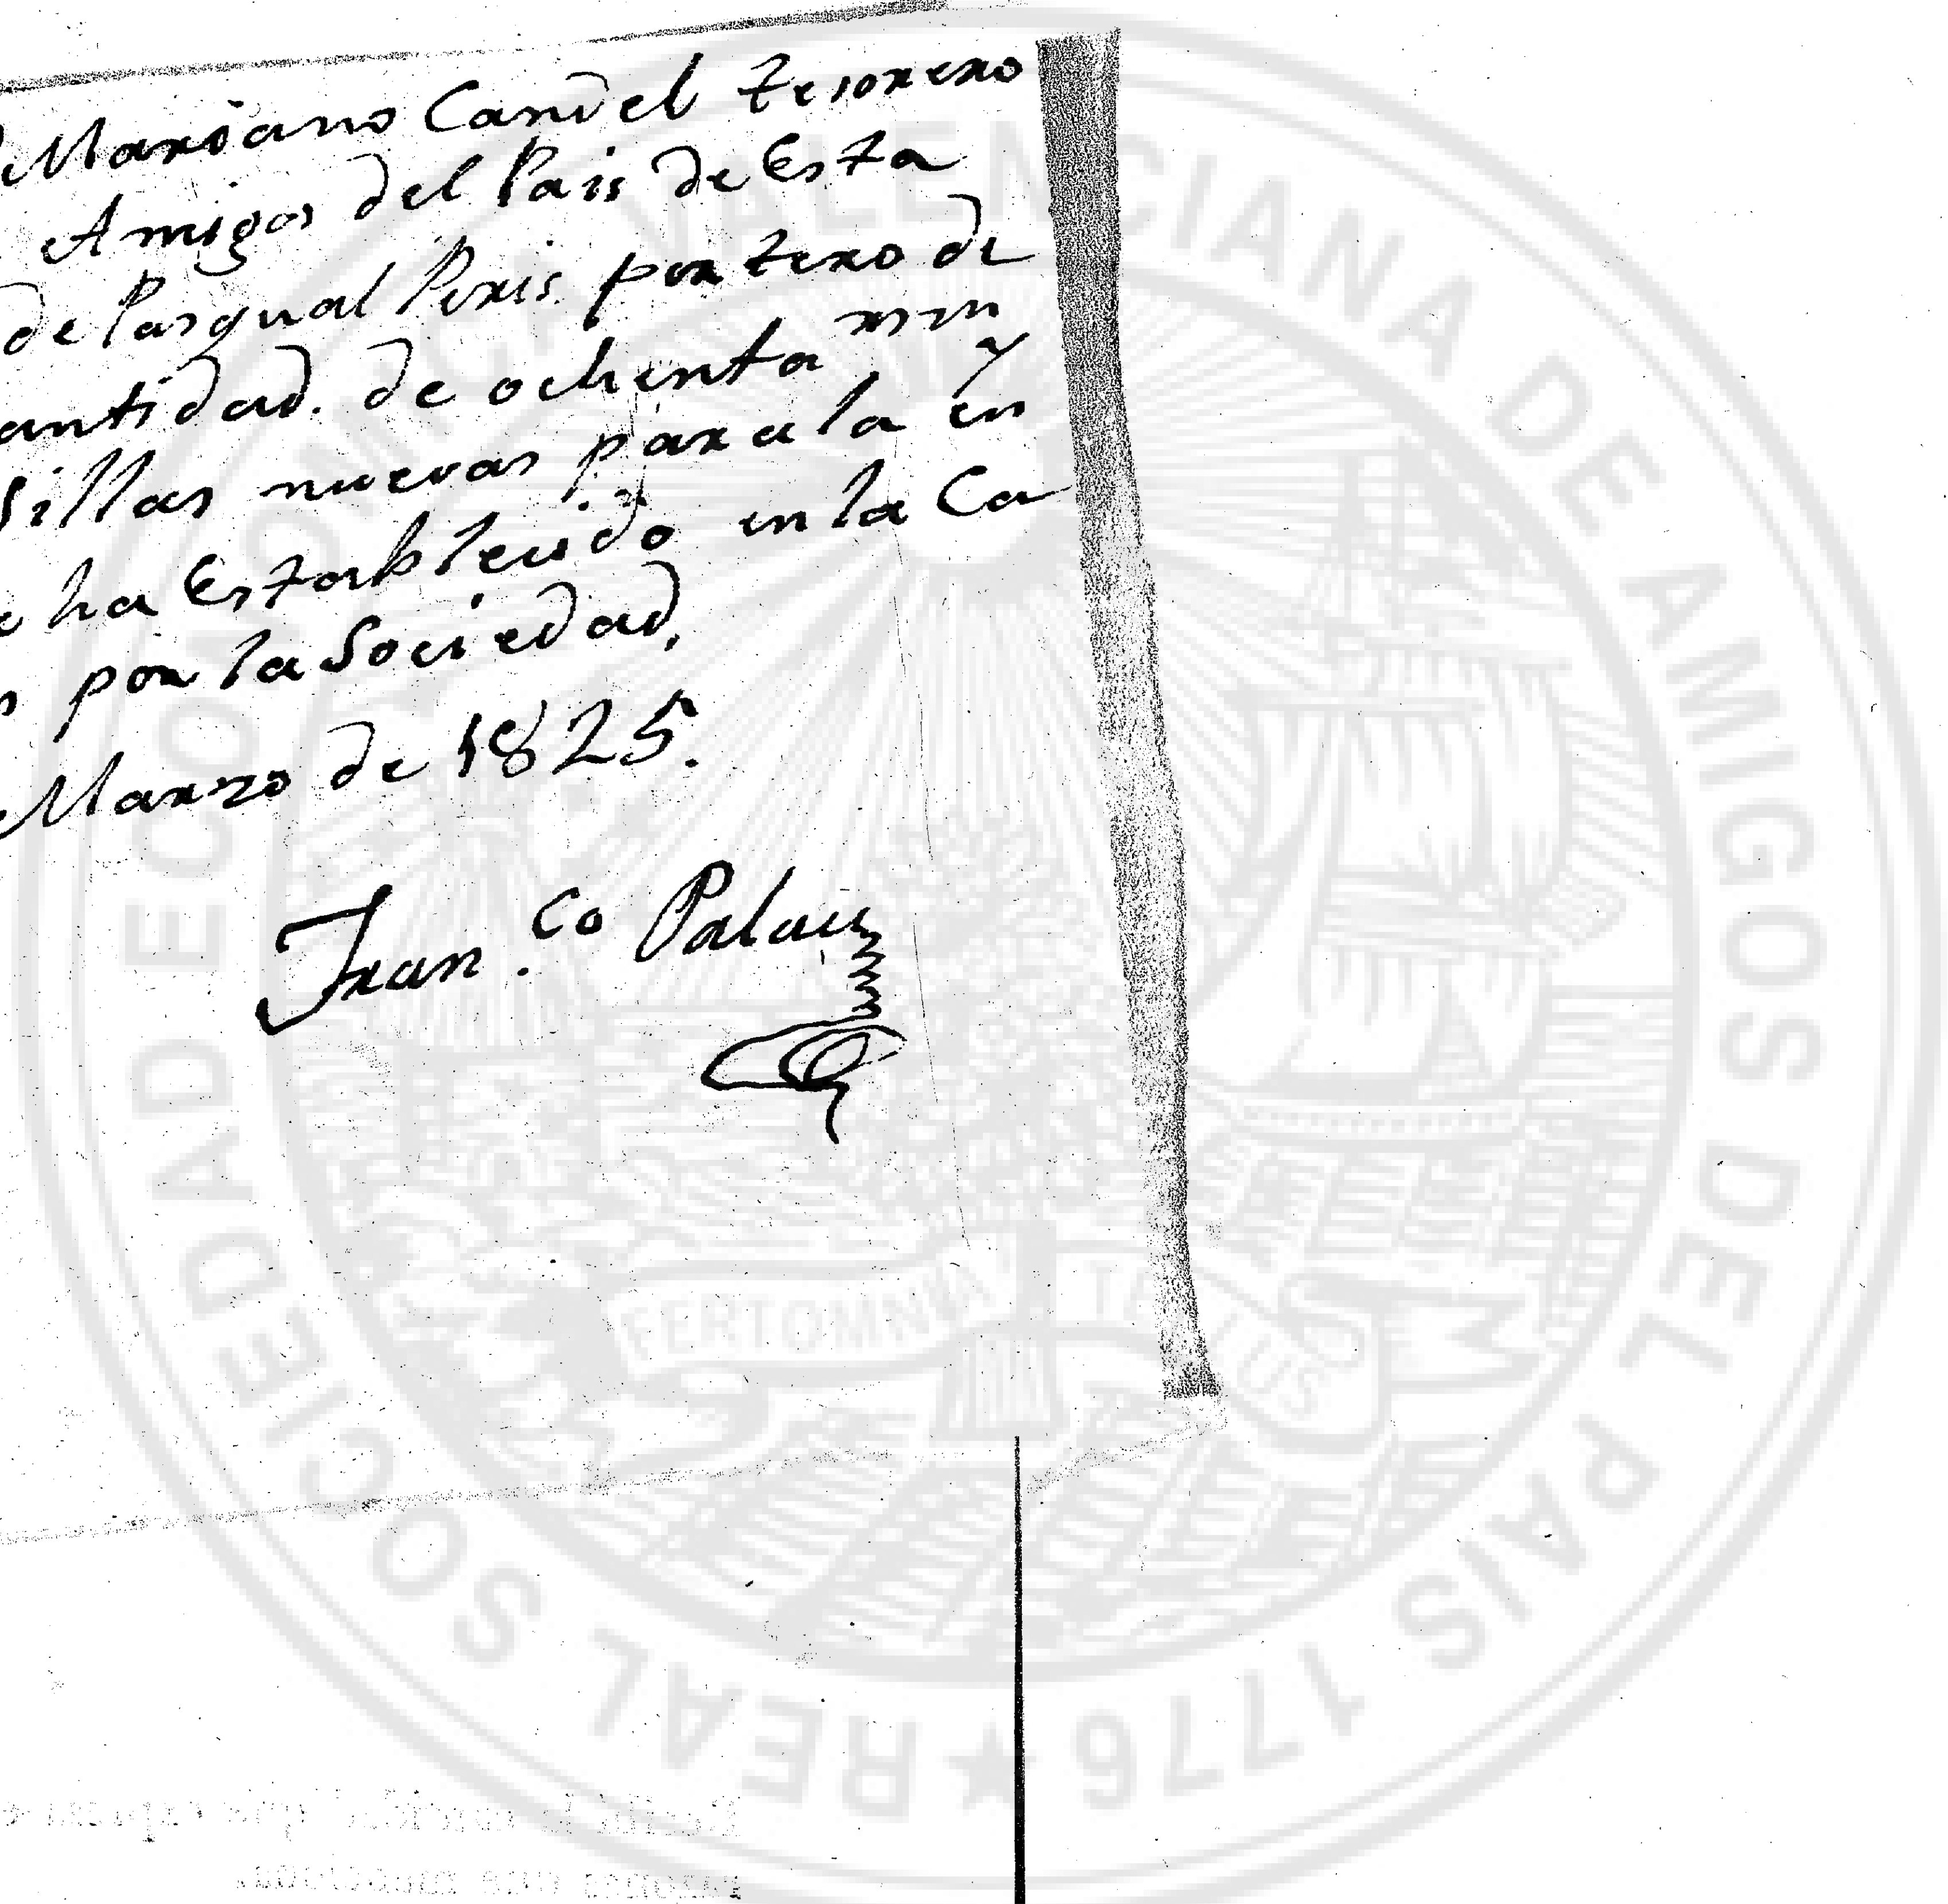 Mariano Candel tesorero
Amigos del Pais de Esta
de Pasqual Peris. portero de
antidad. de ochenta
sillas nuevas para la en
ha Establecido en la Ca
por la Sociedad,
Marzo de 1825.
Fran.co Palau
REAL SOCIEDAD ECONOMICA VALENCIANA DE AMIGOS DEL PAIS 1776